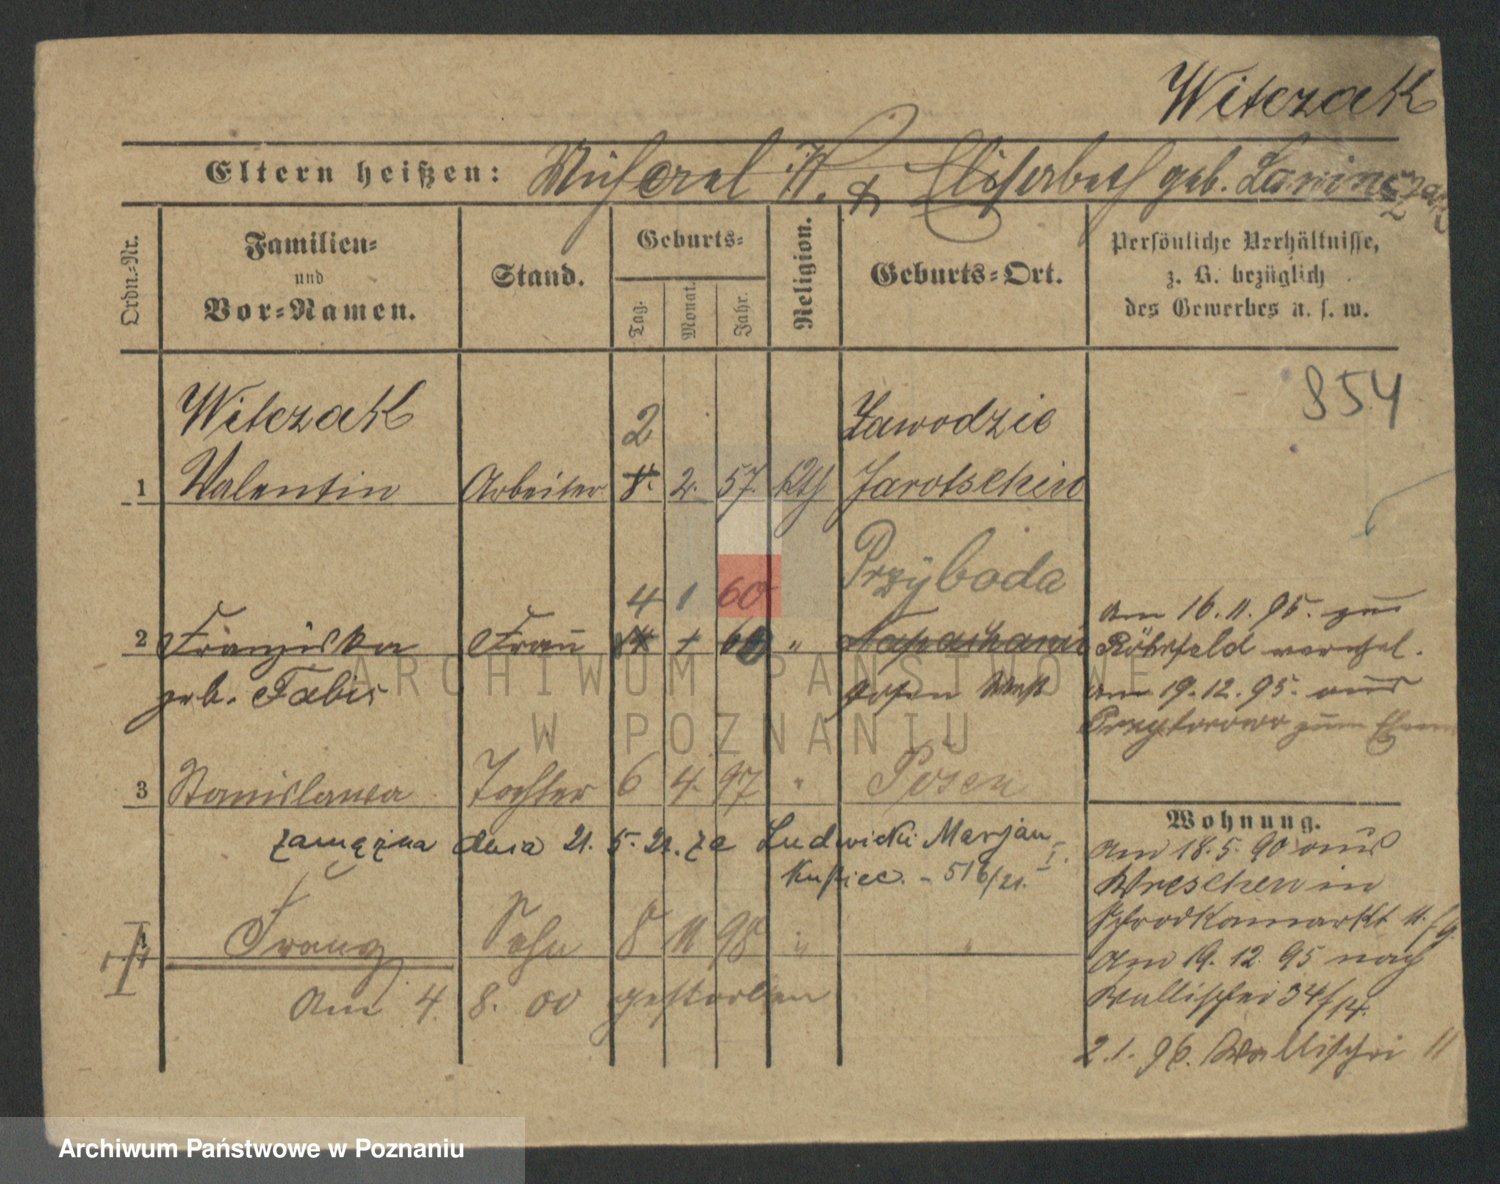 Witczak
Eltern heißen: Michael W. & Elisabeth geb.
Ordn.-Nr.
Familien-
und
Vor-Namen.
Stand.
Geburts-
Tag.
Monat.
Jahr.
Religion.
Geburts-Ort.
Persönliche Verhältnisse,
z. B. bezüglich
des Gewerbes u. s. w.
854
Witczak 2 Zawodzie
1 Valentin Arbeiter 8. 2. 57. kth Jarotschin
4 1 60 Przyboda
2 Franziska Frau " 
geb. Fabis
am 16.11.95. zur
Röhrfeld
am 19.12.95. aus
zum
3 Stanislawa Tochter 6 4. 97 " Posen
zamężna dnia 21. 5. 21. za Ludwicki Marjan
kupiec. - 516/21. I.
4 Franz Sohn 8 11 98 " "
Am 4. 8. 00 gestorben
Wohnung.
Am 18.5.90 aus
Wreschen in
Schrodkamarkt 11/9.
Am 19.12.95 nach
Wallischei 34/14.
2.1.96. Wallischei 11
ARCHIWUM PAŃSTWOWE
W POZNANIU
Archiwum Państwowe w Poznaniu